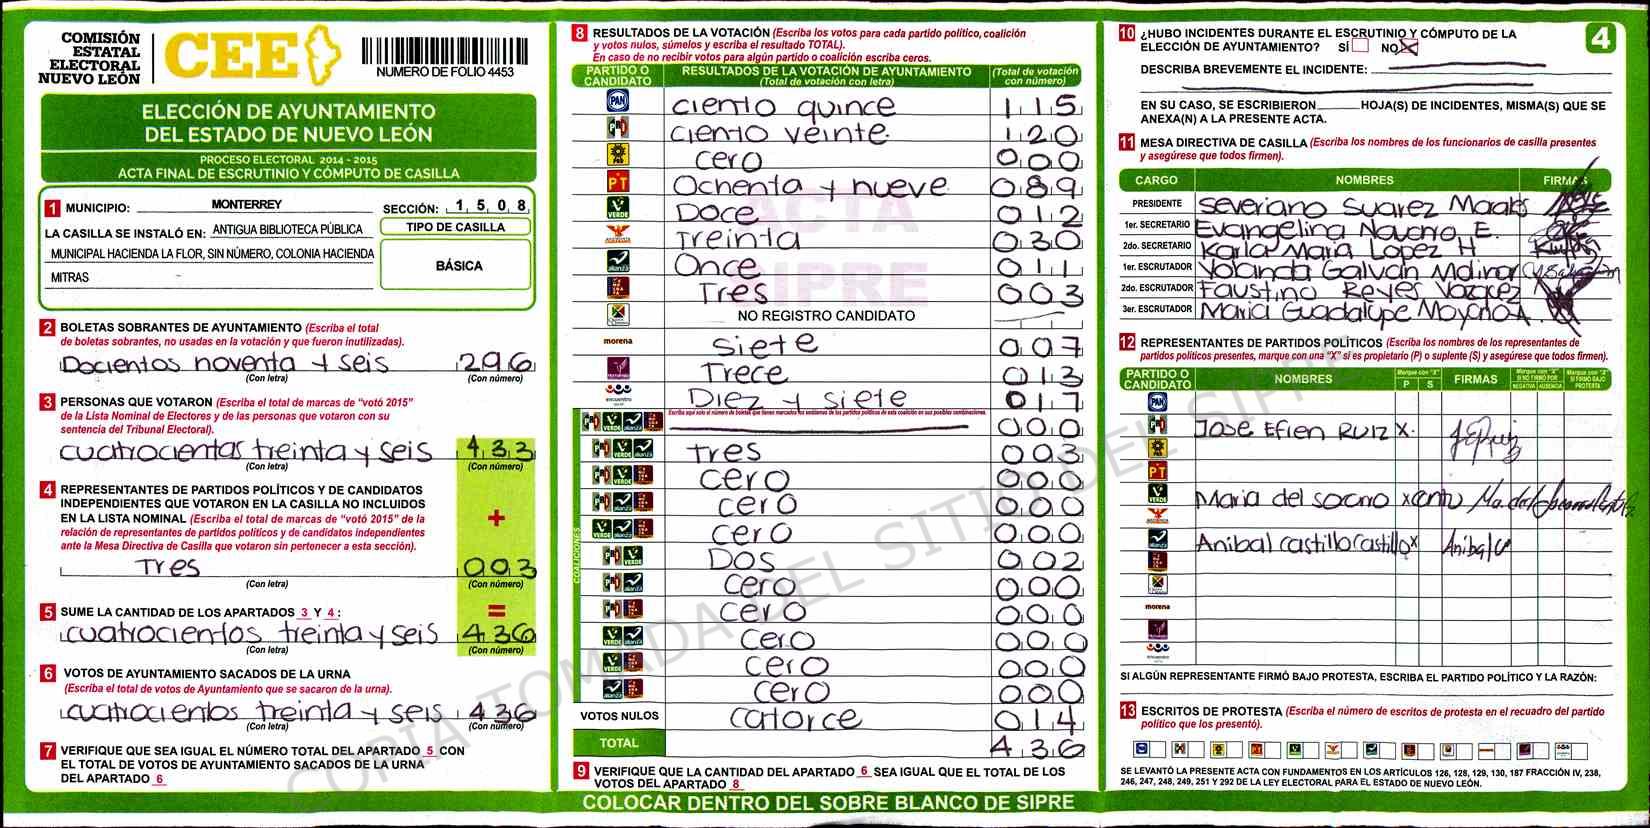 COMISIÓN
ESTATAL
ELECTORAL
NUEVO LEÓN
CEE
NUMERO DE FOLIO 4453
ELECCIÓN DE AYUNTAMIENTO
DEL ESTADO DE NUEVO LEÓN
PROCESO ELECTORAL 2014 - 2015
ACTA FINAL DE ESCRUTINIO Y CÓMPUTO DE CASILLA
1 MUNICIPIO: MONTERREY SECCIÓN: 1508
LA CASILLA SE INSTALÓ EN: ANTIGUA BIBLIOTECA PÚBLICA
MUNICIPAL HACIENDA LA FLOR, SIN NÚMERO, COLONIA HACIENDA
MITRAS
TIPO DE CASILLA
BÁSICA
2 BOLETAS SOBRANTES DE AYUNTAMIENTO (Escriba el total
de boletas sobrantes, no usadas en la votación y que fueron inutilizadas).
Docientos noventa y seis 296
(Con letra) (Con número)
3 PERSONAS QUE VOTARON (Escriba el total de marcas de “votó 2015”
de la Lista Nominal de Electores y de las personas que votaron con su
sentencia del Tribunal Electoral).
cuatrocientas treinta y seis 433
(Con letra) (Con número)
4 REPRESENTANTES DE PARTIDOS POLÍTICOS Y DE CANDIDATOS
INDEPENDIENTES QUE VOTARON EN LA CASILLA NO INCLUIDOS
EN LA LISTA NOMINAL (Escriba el total de marcas de “votó 2015” de la
relación de representantes de partidos políticos y de candidatos independientes
ante la Mesa Directiva de Casilla que votaron sin pertenecer a esta sección).
+
Tres 003
(Con letra) (Con número)
5 SUME LA CANTIDAD DE LOS APARTADOS 3 Y 4 : =
cuatrocientos treinta y seis 436
(Con letra) (Con número)
6 VOTOS DE AYUNTAMIENTO SACADOS DE LA URNA
(Escriba el total de votos de Ayuntamiento que se sacaron de la urna).
cuatrocientos treinta y seis 436
(Con letra) (Con número)
7 VERIFIQUE QUE SEA IGUAL EL NÚMERO TOTAL DEL APARTADO 5 CON
EL TOTAL DE VOTOS DE AYUNTAMIENTO SACADOS DE LA URNA
DEL APARTADO 6
8 RESULTADOS DE LA VOTACIÓN (Escriba los votos para cada partido político, coalición
y votos nulos, súmelos y escriba el resultado TOTAL).
En caso de no recibir votos para algún partido o coalición escriba ceros.
PARTIDO O CANDIDATO RESULTADOS DE LA VOTACIÓN DE AYUNTAMIENTO (Total de votación con letra) (Total de votación con número)
PAN ciento quince 115
PRI ciento veinte 120
PRD cero 000
PT Ochenta y nueve 089
VERDE Doce 012
Treinta 030
alianza Once 011
Tres 003
NO REGISTRO CANDIDATO
morena siete 007
Trece 013
encuentro Diez y siete 017
Escriba aquí solo el número de boletas que tienen marcados los emblemas de los partidos políticos de esta coalición en sus posibles combinaciones.
COALICIONES
000
Tres 003
cero 000
cero 000
cero 000
Dos 002
cero 000
cero 000
cero 000
cero 000
cero 000
VOTOS NULOS catorce 014
TOTAL 436
9 VERIFIQUE QUE LA CANTIDAD DEL APARTADO 6 SEA IGUAL QUE EL TOTAL DE LOS
VOTOS DEL APARTADO 8
COLOCAR DENTRO DEL SOBRE BLANCO DE SIPRE
ACTA
SIPRE
COPIA TOMADA DEL SITIO DEL SIPRE
10 ¿HUBO INCIDENTES DURANTE EL ESCRUTINIO Y CÓMPUTO DE LA
ELECCIÓN DE AYUNTAMIENTO? SÍ NO X
4
DESCRIBA BREVEMENTE EL INCIDENTE:
EN SU CASO, SE ESCRIBIERON HOJA(S) DE INCIDENTES, MISMA(S) QUE SE
ANEXA(N) A LA PRESENTE ACTA.
11 MESA DIRECTIVA DE CASILLA (Escriba los nombres de los funcionarios de casilla presentes
y asegúrese que todos firmen).
CARGO NOMBRES FIRMAS
PRESIDENTE Severiano Suarez Morales
1er. SECRETARIO Evangelina Navarro E.
2do. SECRETARIO Karla Maria Lopez H
1er. ESCRUTADOR Yolanda Galván Molina
2do. ESCRUTADOR Faustino Reyes Vazquez
3er. ESCRUTADOR Maria Guadalupe Moyano A.
12 REPRESENTANTES DE PARTIDOS POLÍTICOS (Escriba los nombres de los representantes de
partidos políticos presentes, marque con una “X” si es propietario (P) o suplente (S) y asegúrese que todos firmen).
PARTIDO O CANDIDATO NOMBRES Marque con "X" P S FIRMAS Marque con "X" SI NO FIRMÓ POR NEGATIVA AUSENCIA Marque con "X" SI FIRMÓ BAJO PROTESTA
PAN
PRI Jose Efren Ruiz X
PRD
PT
VERDE Maria del socorro x
alianza Anibal castillo castillo x Anibal
morena
SI ALGÚN REPRESENTANTE FIRMÓ BAJO PROTESTA, ESCRIBA EL PARTIDO POLÍTICO Y LA RAZÓN:
13 ESCRITOS DE PROTESTA (Escriba el número de escritos de protesta en el recuadro del partido
político que los presentó).
SE LEVANTÓ LA PRESENTE ACTA CON FUNDAMENTOS EN LOS ARTÍCULOS 126, 128, 129, 130, 187 FRACCIÓN IV, 238,
246, 247, 248, 249, 251 Y 292 DE LA LEY ELECTORAL PARA EL ESTADO DE NUEVO LEÓN.